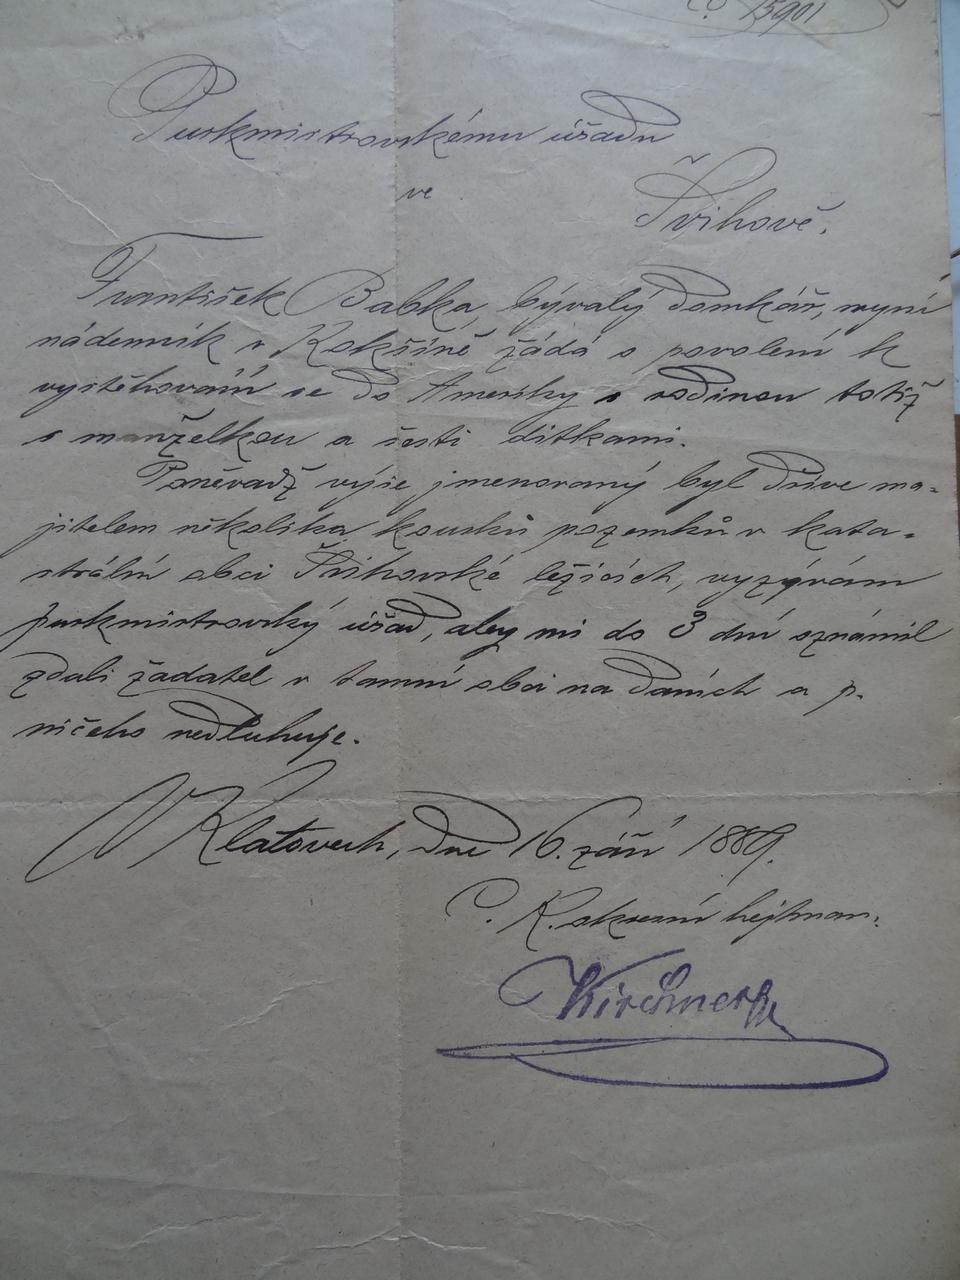 č. 15901
Purkmistrovskému úřadu
ve
Švihově.
František Babka, bývalý domkář, nyní
nádenník v Kokšíně žádá o povolení k
vystěhování se do Ameriky s rodinou totiž
s manželkou a šesti dítkami.
Poněvadž výše jmenovaný byl dříve ma-
jitelem několika kousků pozemků v kata-
strální obci Švihovské ležících, vyzývám
purkmistrovský úřad, aby mi do 3 dní oznámil
zdali žadatel v tamní obci na daních a p.
ničeho nedluhuje.
V Klatovech, dne 16. září 1889.
C. K. okresní hejtman.